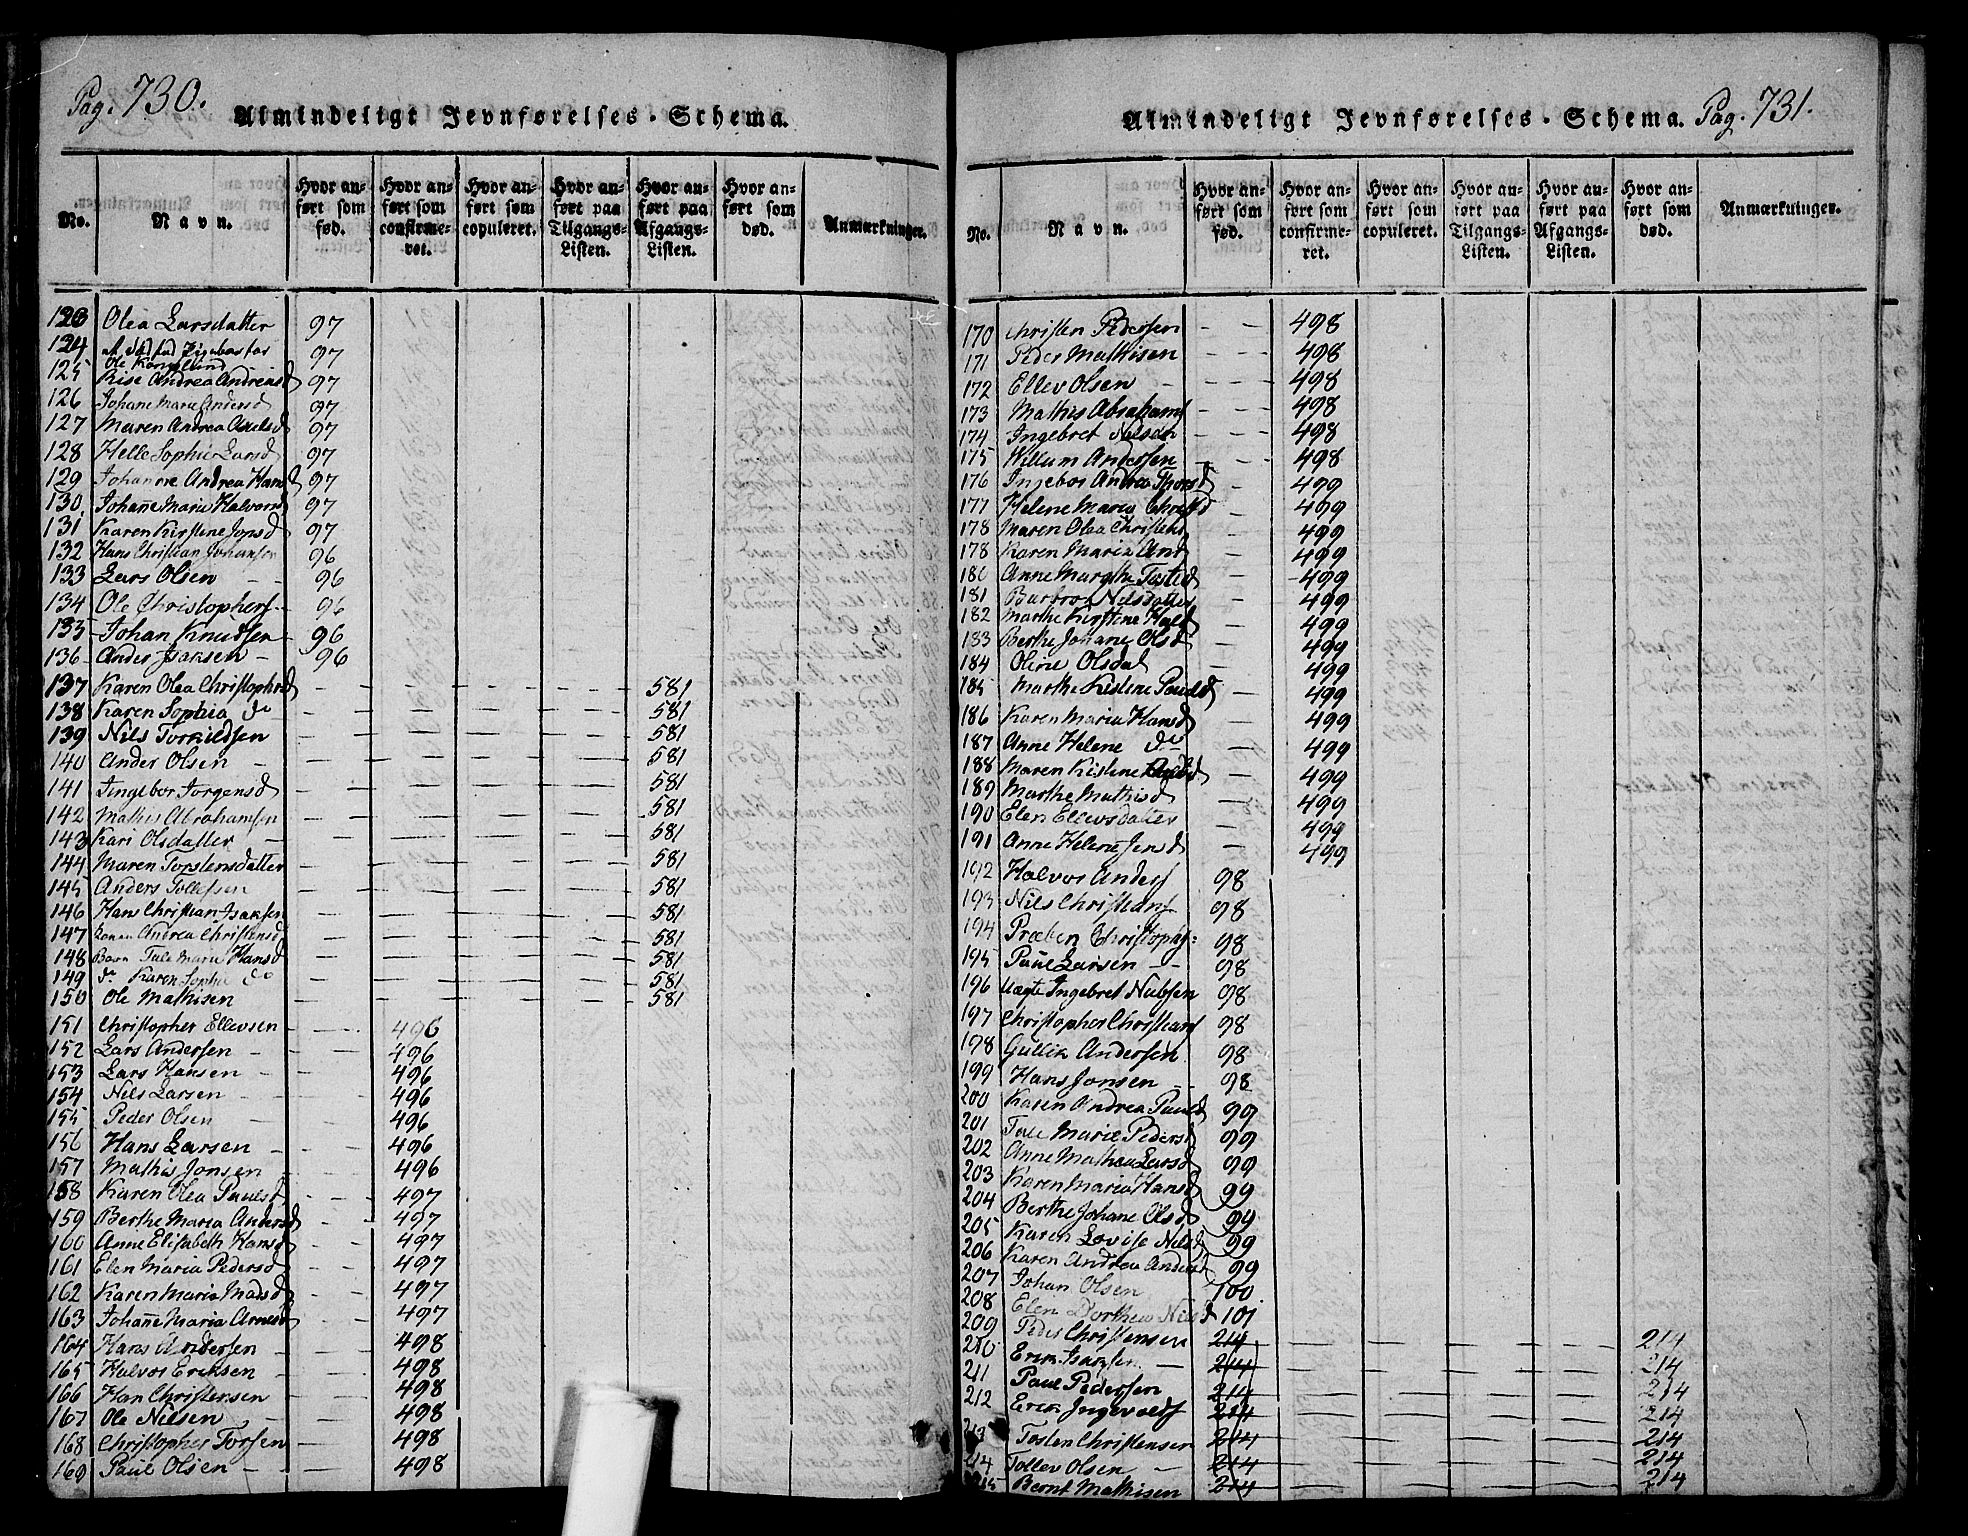 Pag. 730.
Almindeligt Jevnførelses-Schema.
No.
Navn.
Hvor anført som fød.
Hvor anført som confirmeret.
Hvor anført som copuleret.
Hvor anført paa Tilgangs-Listen.
Hvor anført paa Afgangs-Listen.
Hvor anført som død.
Anmærkninger.
123 Olea Larsdatter 97
124 97
Ole Kongslund
125 Andrea Andreasd 97
126 Johane Marie Andersd 97
127 Maren Andrea Axelsd 97
128 Helle Sophie Larsd 97
129 Johanne Andrea Hansd 97
130 Johane Marie Halvorsd 97
131 Karen Kirstine Jonsd 97
132 Hans Christian Johansen 96
133 Lars Olsen - - 96
134 Ole Christophers - 96
135 Johan Knudsen 96
136 Ander Isaksen - 96
137 Karen Olea Christophersd - - - - - 581
138 Karen Sophia do - - - - 581
139 Nils Torkildsen - - - - 581
140 Ander Olsen - - - - - 581
141 Ingebor Jorgensd - - - - 581
142 Mathis Abrahamsen - - - - 581
143 Kari Olsdatter - - - - - 581
144 Maren Torstensdatter - - - - 581
145 Anders Tollefsen - - - - 581
146 Hans Christian Isaksen - - - - 581
147 Andrea Christensd - - - - 581
148 Barn Tale Marie Hansd - - - - 581
149 do Karen Sophie do - - - - 581
150 Ole Mathisen - - - - 581
151 Christopher Ellevsen - - 496
152 Lars Andersen - - - 496
153 Lars Hansen - - - 496
154 Nils Larsen - - - 496
155 Peder Olsen - - - 496
156 Hans Larsen - - - 496
157 Mathis Jonsen - - - 496
158 Karen Olea Paulsd - - 497
159 Berthe Maria Andersd - - 497
160 Anne Elisabeth Hansd - - 497
161 Elen Maria Pedersd - - 497
162 Karen Maria Madsd - - 497
163 Johane Maria Arnesd - - 497
164 Hans Andersen - - 498
165 Halvor Eriksen - - 498
166 Han Christensen - - 498
167 Ole Nilsen - - 498
168 Christopher Torsen - 498
169 Paul Olsen - - 498
Almindeligt Jevnførelses-Schema. Pag. 731.
No.
Navn.
Hvor anført som fød.
Hvor anført som confirmeret.
Hvor anført som copuleret.
Hvor anført paa Tilgangs-Listen.
Hvor anført paa Afgangs-Listen.
Hvor anført som død.
Anmærkninger.
170 Christen Pedersen - - 498
171 Peder Mathisen - - 498
172 Ellev Olsen - - - 498
173 Mathis Abrahams - - 498
174 Ingebret Nilsen - - 498
175 Willum Andersen - - 498
176 Ingebor Andrea Thorsd - 499
177 Helene Maria Christsd - 499
178 Maren Olea Christensd - 499
178 Karen Maria And - 499
180 Anne Margthe Tosted - 499
181 Barbroe Nilsdatter - 499
182 Marthe Kirstine Halvd - 499
183 Berthe Johane Olsd - 499
184 Oline Olsdat - 499
185 Marthe Kistene Paulsd - 499
186 Karen Maria Hansd - 499
187 Anne Helene do - 499
188 Maren Kistene - 499
189 Marthe Mathisd - 499
190 Elen Ellevsdatter - 499
191 Anne Helene Jensd - 499
192 Halvor Anders 98
193 Nils Christians 98
194 Præben Christophs: 98
195 Paul Larsen - - 98
196 Uægte Ingebret Nubsen 98
197 Christopher Christians 98
198 Gullik Andersen 98
199 Hans Jonsen - - 98
200 Karen Andrea Paulsd 99
201 Tale Marie Pedersd 99
202 Anne Mathea Larsd 99
203 Karen Maria Hansd 99
204 Berthe Johane Olsd 99
205 Karen Lovise Nilsd 99
206 Karen Andrea Andersd 99
207 Johan Olsen 100
208 Elen Dorthea Nilsd 101
209 Peder Christensen 214 - - - - 214
210 Erik Isaksen - 214 - - - - 214
211 Paul Pedersen 214 - - - - 214
212 Erik Ingevolds 214 - - - - 214
213 Tosten Christensen 214 - - - - 214
214 Tollev Olsen - 214 - - - - 214
215 Bernt Mathisen 214 - - - - 214